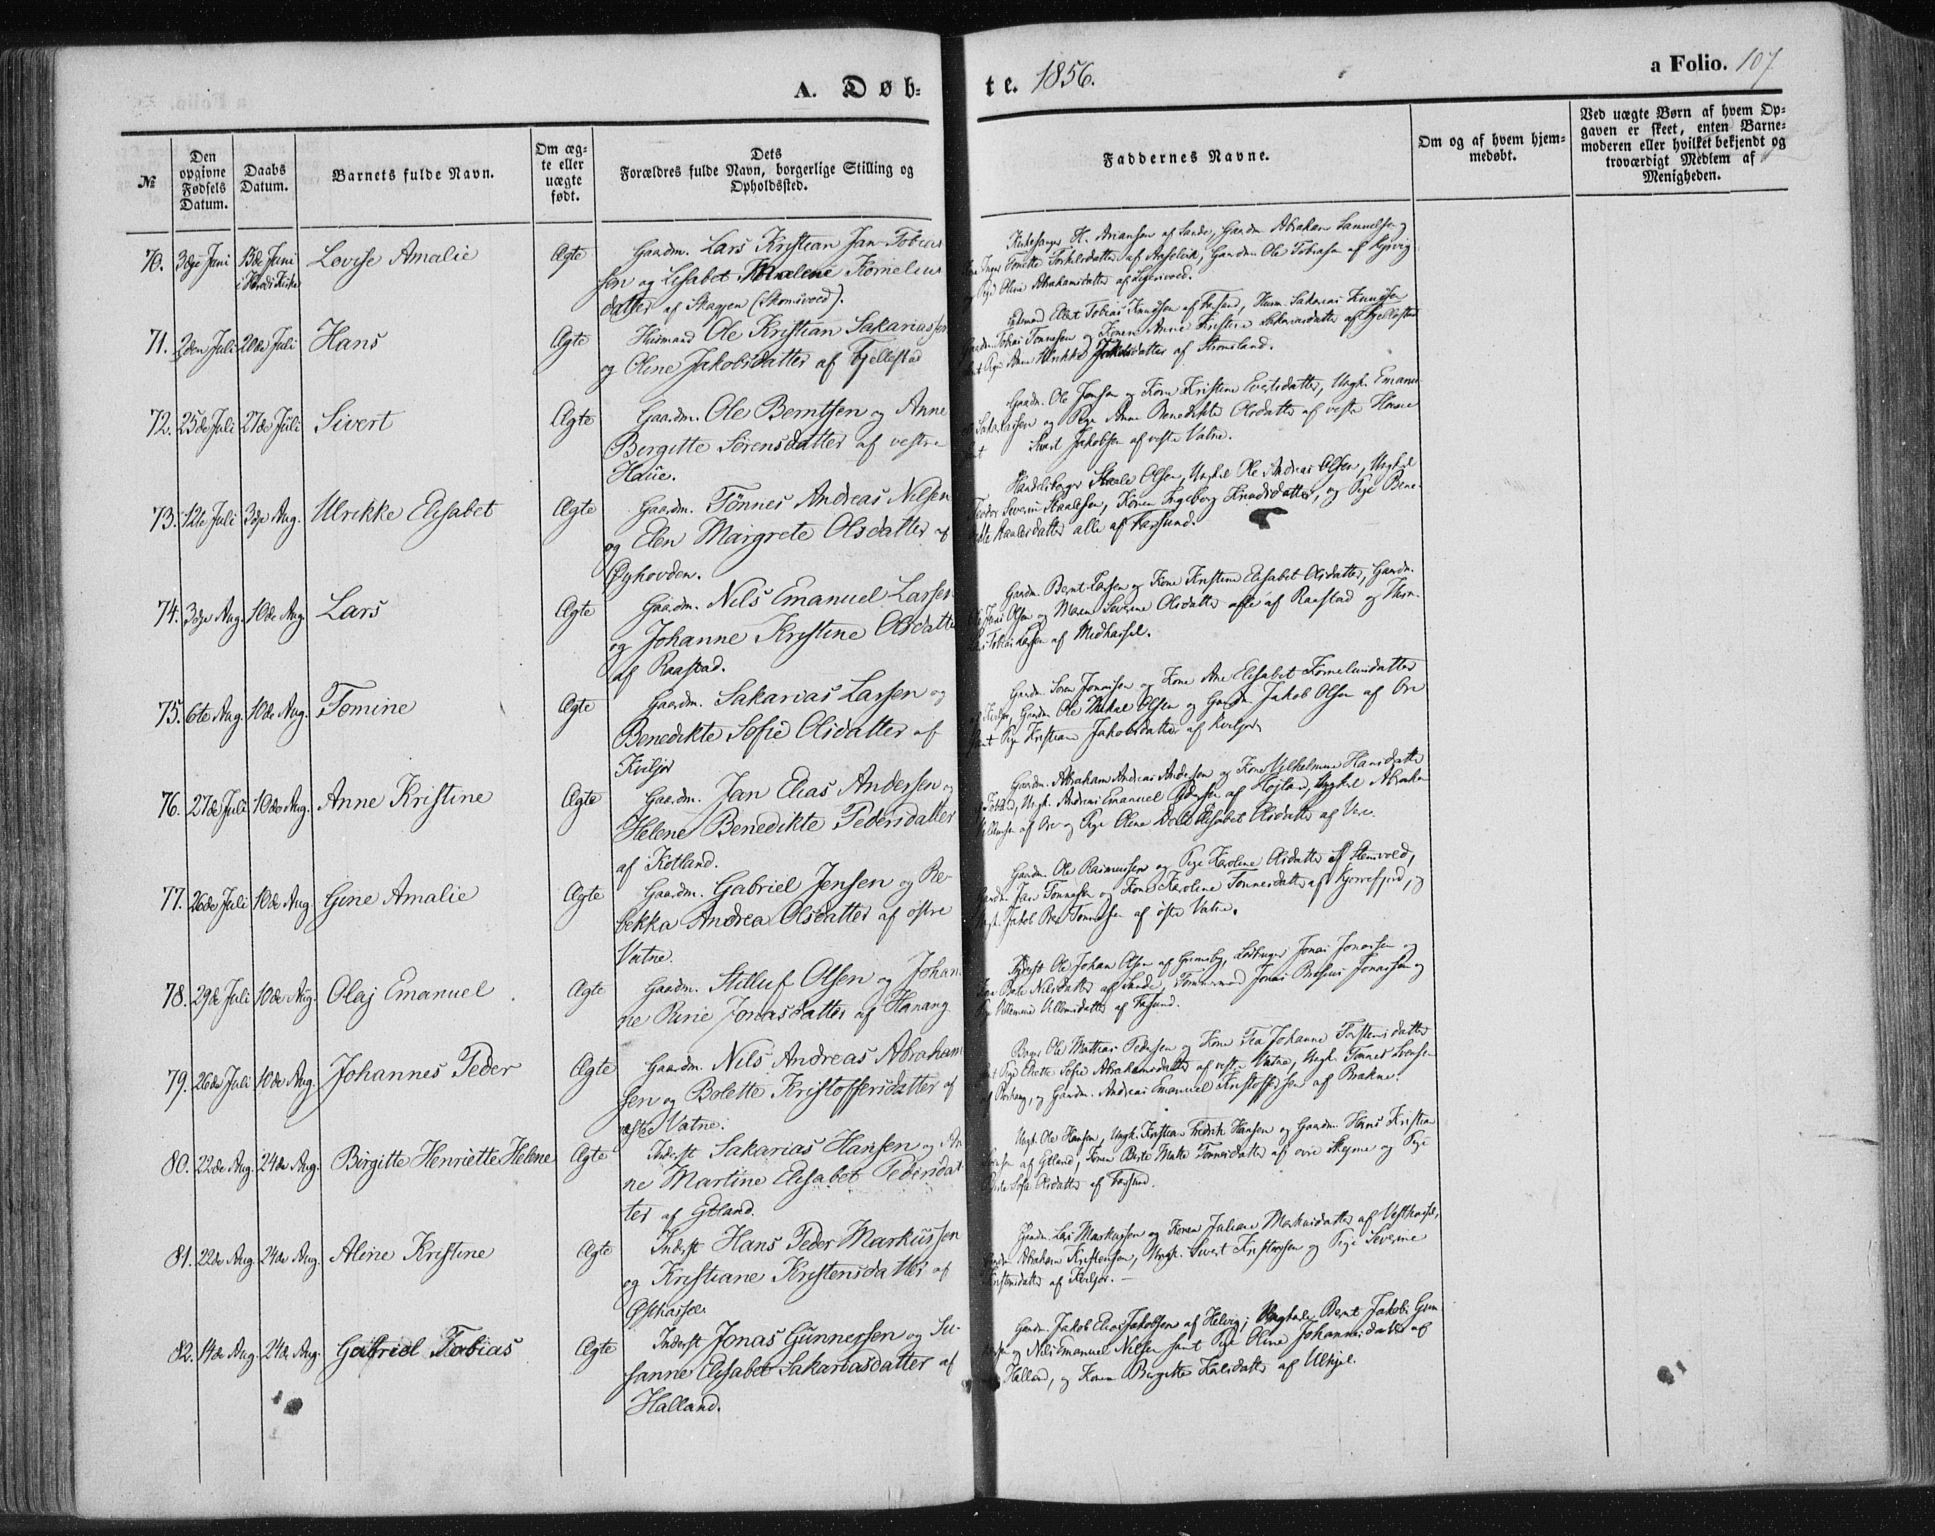 A. Døb-
te. 1856.
a Folio. 107
№
Den opgivne Fødsels Datum.
Daabs Datum.
Barnets fulde Navn.
Om ægte eller uægte født.
Dets Forældres fulde Navn, borgerlige Stilling og Opholdssted.
Faddernes Navne.
Om og af hvem hjemmedøbt.
Ved uægte Børn af hvem Opgaven er skeet, enten Barnemoderen eller hvilket bekjendt og troværdigt Medlem af Menigheden.
70. 3dje Juni 15de Juni Lovise Amalie Ægte Gaardm. Lars Kristian Jan Tobias
sen og Lisabet Malene Kornelius
datter af Skagen (Skomsvoed).
Kirkesanger H. Ariansen af Sande, Gaardm. Abraham Samuelsen og
Gaardm. Ole Tobiasen af
Pige Oline Abrahamsdatter af
71. 2den Juli 20de Juli Hans Ægte Huusmand Ole Kristian Sakariassen
og Oline Jakobsdatter af Fjellestad
Tobias Knudsen af Farsund, Huusm. Sakarias Knudsen
Tobias Tønnesen og Konen Anne Kristine Sakariasdatter af Fjellestad
Pige Anne Jakobsdatter af Stromsland.
72. 25de Juli 27de Juli Sivert Ægte Gaardm. Ole Berntsen og Anne
Birgitte Sørensdatter af vestre
Haue.
Gaardm. Ole Jensen og Kone Kristine Evertsdatter, Ungk. Emanu
og Pige Anne Benedikte Olsdatter af vestre Haue
Sivert Jakobsen af vestre Vatne.
73. 12te Juli 3dje Aug. Ulrikke Elisabet Ægte Gaardm. Tønnes Andreas Nilsen
og Elen Margrete Olsdatter af
Øyhovden.
Handelsborger Staale Olsen, Ungkl Ole Andreas Olsen, Ungkal
Teodor Severin Staalesen, Konen Ingeborg Knudsdatter, og Pige Bene-
dikte Staalesdatter alle af Farsund.
74. 3dje Aug. 10de Aug. Lars Ægte Gaardm. Nils Emanuel Larsen
og Johanne Kristine Olsdatter
af Raastad.
Gaardm. Bernt Larsen og Kone Kristine Elisabet Olsdatter, Gaardm.
Olsen og Maren Severine Olsdatter alle af Raastad og
Tobias Larsen af Midhassel.
75. 6te Aug. 10de Aug. Tomine Ægte Gaardm. Sakarias Larsen og
Benedikte Sofie Olsdatter af
Kviljo
Gaardm Søren Jonassen og Kone Ane Elisabet Korneliusdatter
Gaardm Ole Mikal Olsen og Gaardm Jakob Olsen af Ore
samt Pige Kristiane Jakobsdatter af Kviljo
76. 27de Juli 10de Aug. Anne Kristine Ægte Gaardm. Jan Elias Andersen og
Helene Benedikte Pedersdatter
af Kotland.
Gaardm. Abraham Andreas Andersen og Kone Vilhelmine Hansdatter
Ungk. Andreas Emanuel Pedersen af Højland, Ungkl Abraham
af Ore og Pige Oline Elisabet Olsdatter af Vere.
77. 26de Juli 10de Aug Gine Amalie Ægte Gaardm. Gabriel Jensen og Re-
bekka Andrea Olsdatter af østre
Vatne.
Gaardm. Ole Rasmussen og Pige Karoline Olsdatter af Stensvold,
Gaardm. Jan Tønnesen og Kone Karoline Tønnesdatter af Kjorrefjord, og
Ungk. Jakob Tønnesen af østre Vatne.
78. 29de Juli 10de Aug. Olaj Emanuel Ægte Gaardm. Stilluf Olsen og Johan-
ne Marie Jonasdatter af Hanang
Ole Johan Olsen af Gunnsby, Jonas Jonassen og
Nilsdatter af Sande, Tømmermand Jonas Jonassen og
Pige Villemine Villumsdatter af Farsund.
79. 26de Juli 10de Aug. Johannes Peder Ægte Gaardm. Nils Andreas Abraham
sen og Bolette Kristoffersdatter af
vestre Vatne.
Bager Ole Mattias Pedersen og Kone Tea Johanne Torstensdatter
samt Pige Elrette Sofie Abrahamsdatter af vestre Vatne, Ungk. Tønnes Svensen
og Gaardm. Andreas Emanuel Kristoffersen af Brekne.
80. 22de Aug. 24de Aug. Birgitte Henriette Helene Ægte Inderst Sakarias Hansen og An
ne Martine Elisabet Pedersdat
ter af Gtland.
Ungk. Ole Hansen, Ungk. Kristian Fredrik Hansen og Gaardm. Hans Kristian
af Etland, Konen Berte Malte Tønnesdatter af øvre Skeyme og Pige
Sofie Olsdatter af Farsund.
81. 22de Aug 24de Aug. Aline Kristine Ægte Inderst Hans Peder Markussen
og Kristiane Kristensdatter af
Østhassel
Gaardm. Lars Markussen og Konen Juliane Markusdatter af Vesthassel,
Gaardm. Abraham Kristensen, Ungk. Sivert Kristensen og Pige Severine
Kristensdatter af Kviljo.
82. 14de Aug. 24de Aug. Gabriel Tobias Ægte Inderst Jonas Gunnersen og Su-
sanne Elisabet Sakariasdatter af
Halland.
Gaardm. Jakob Elias Jakobsen af Helvig, Ungkale Bernt Jakob Gun
og Nils Emanuel Nilsen samt Pige Oline Johannesdatter af
Halland, og Konen Birgitte Karlsdatter af Ulhjel.